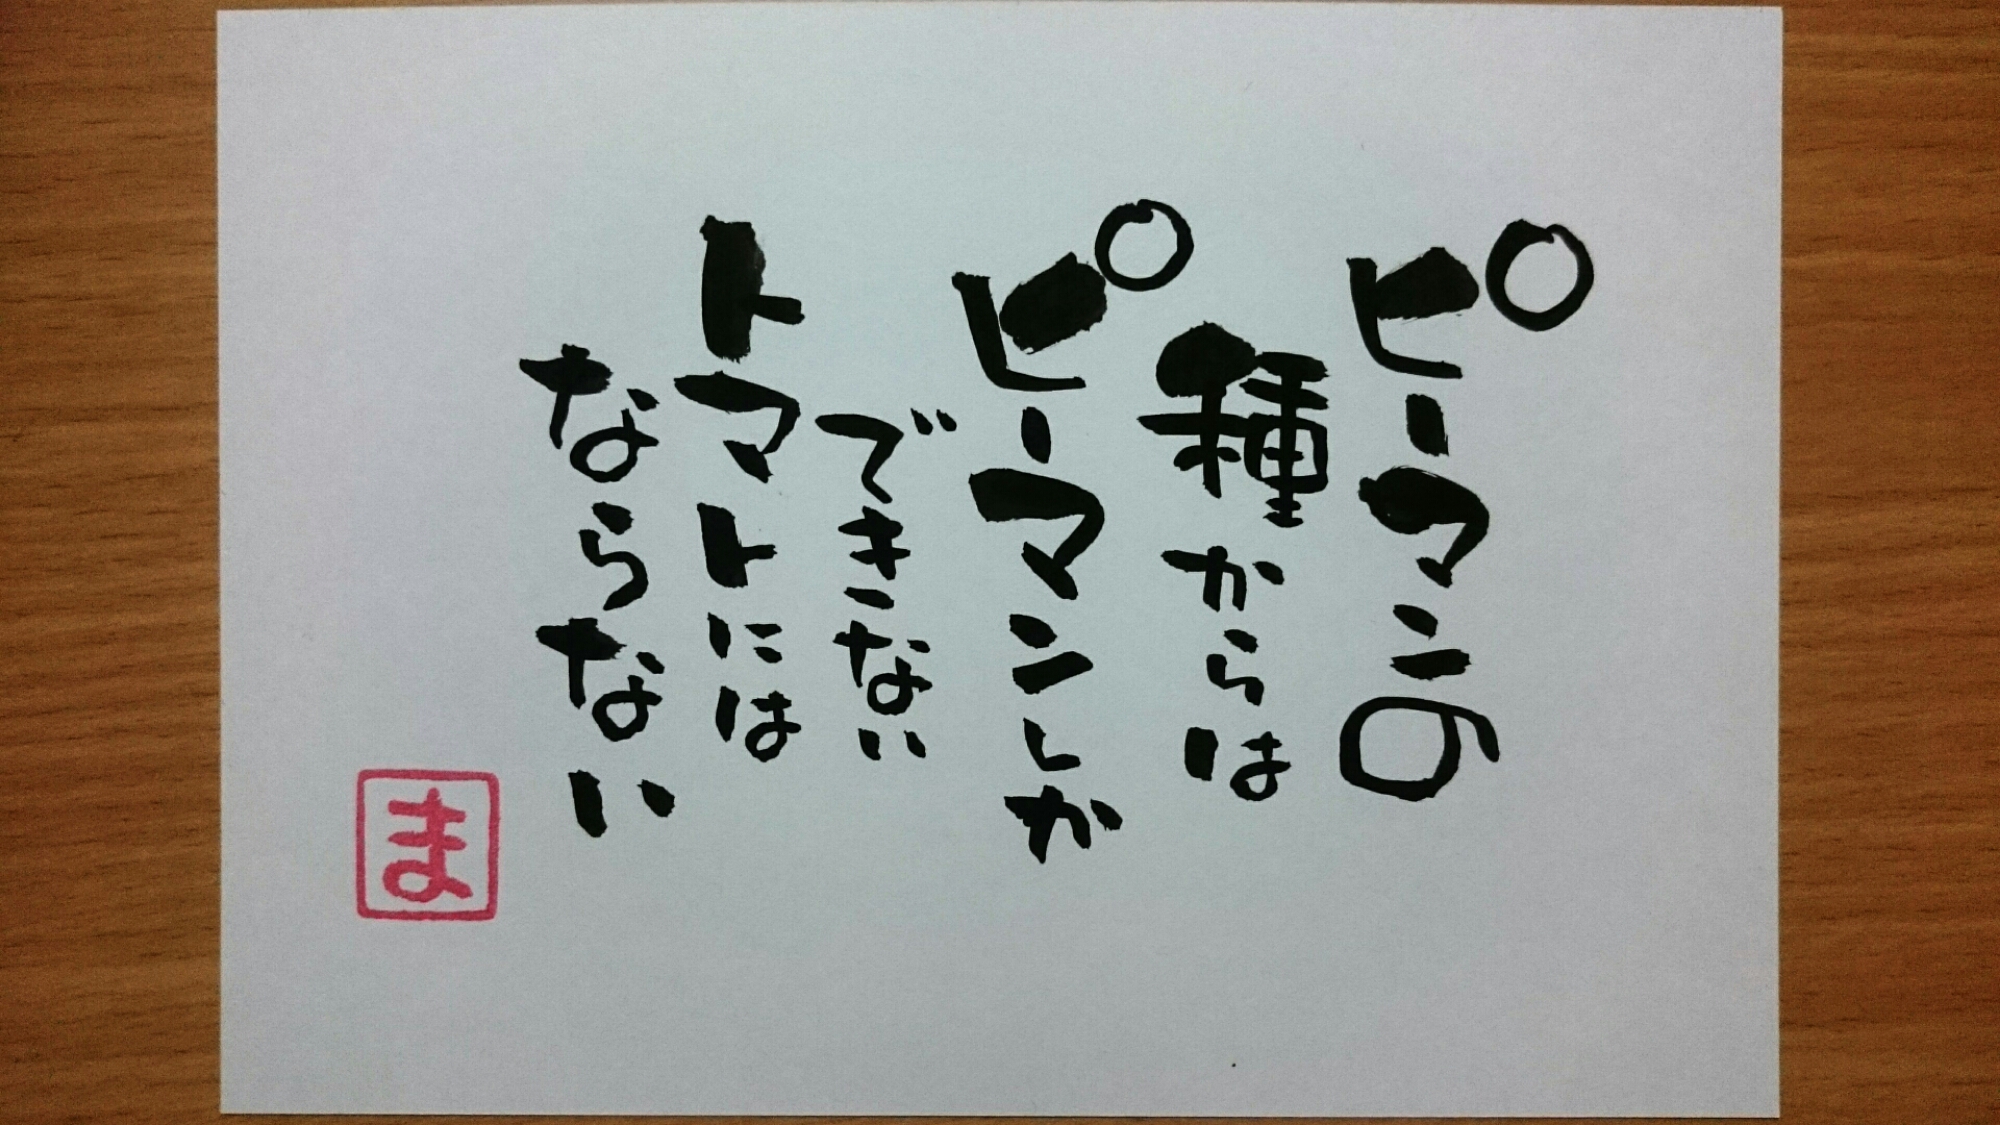 ピーマンの
種からは
ピーマンしか
できない
トマトには
ならない
ま